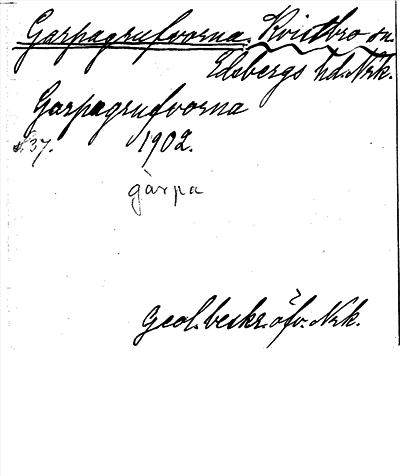 Garpagrufvorna. Kvistbro sn.
Edsbergs hd. Nrk.
Garpagrufvorna
s. 37. 1902.
gàrpa
Geol. beskr. öfv. Nrk.